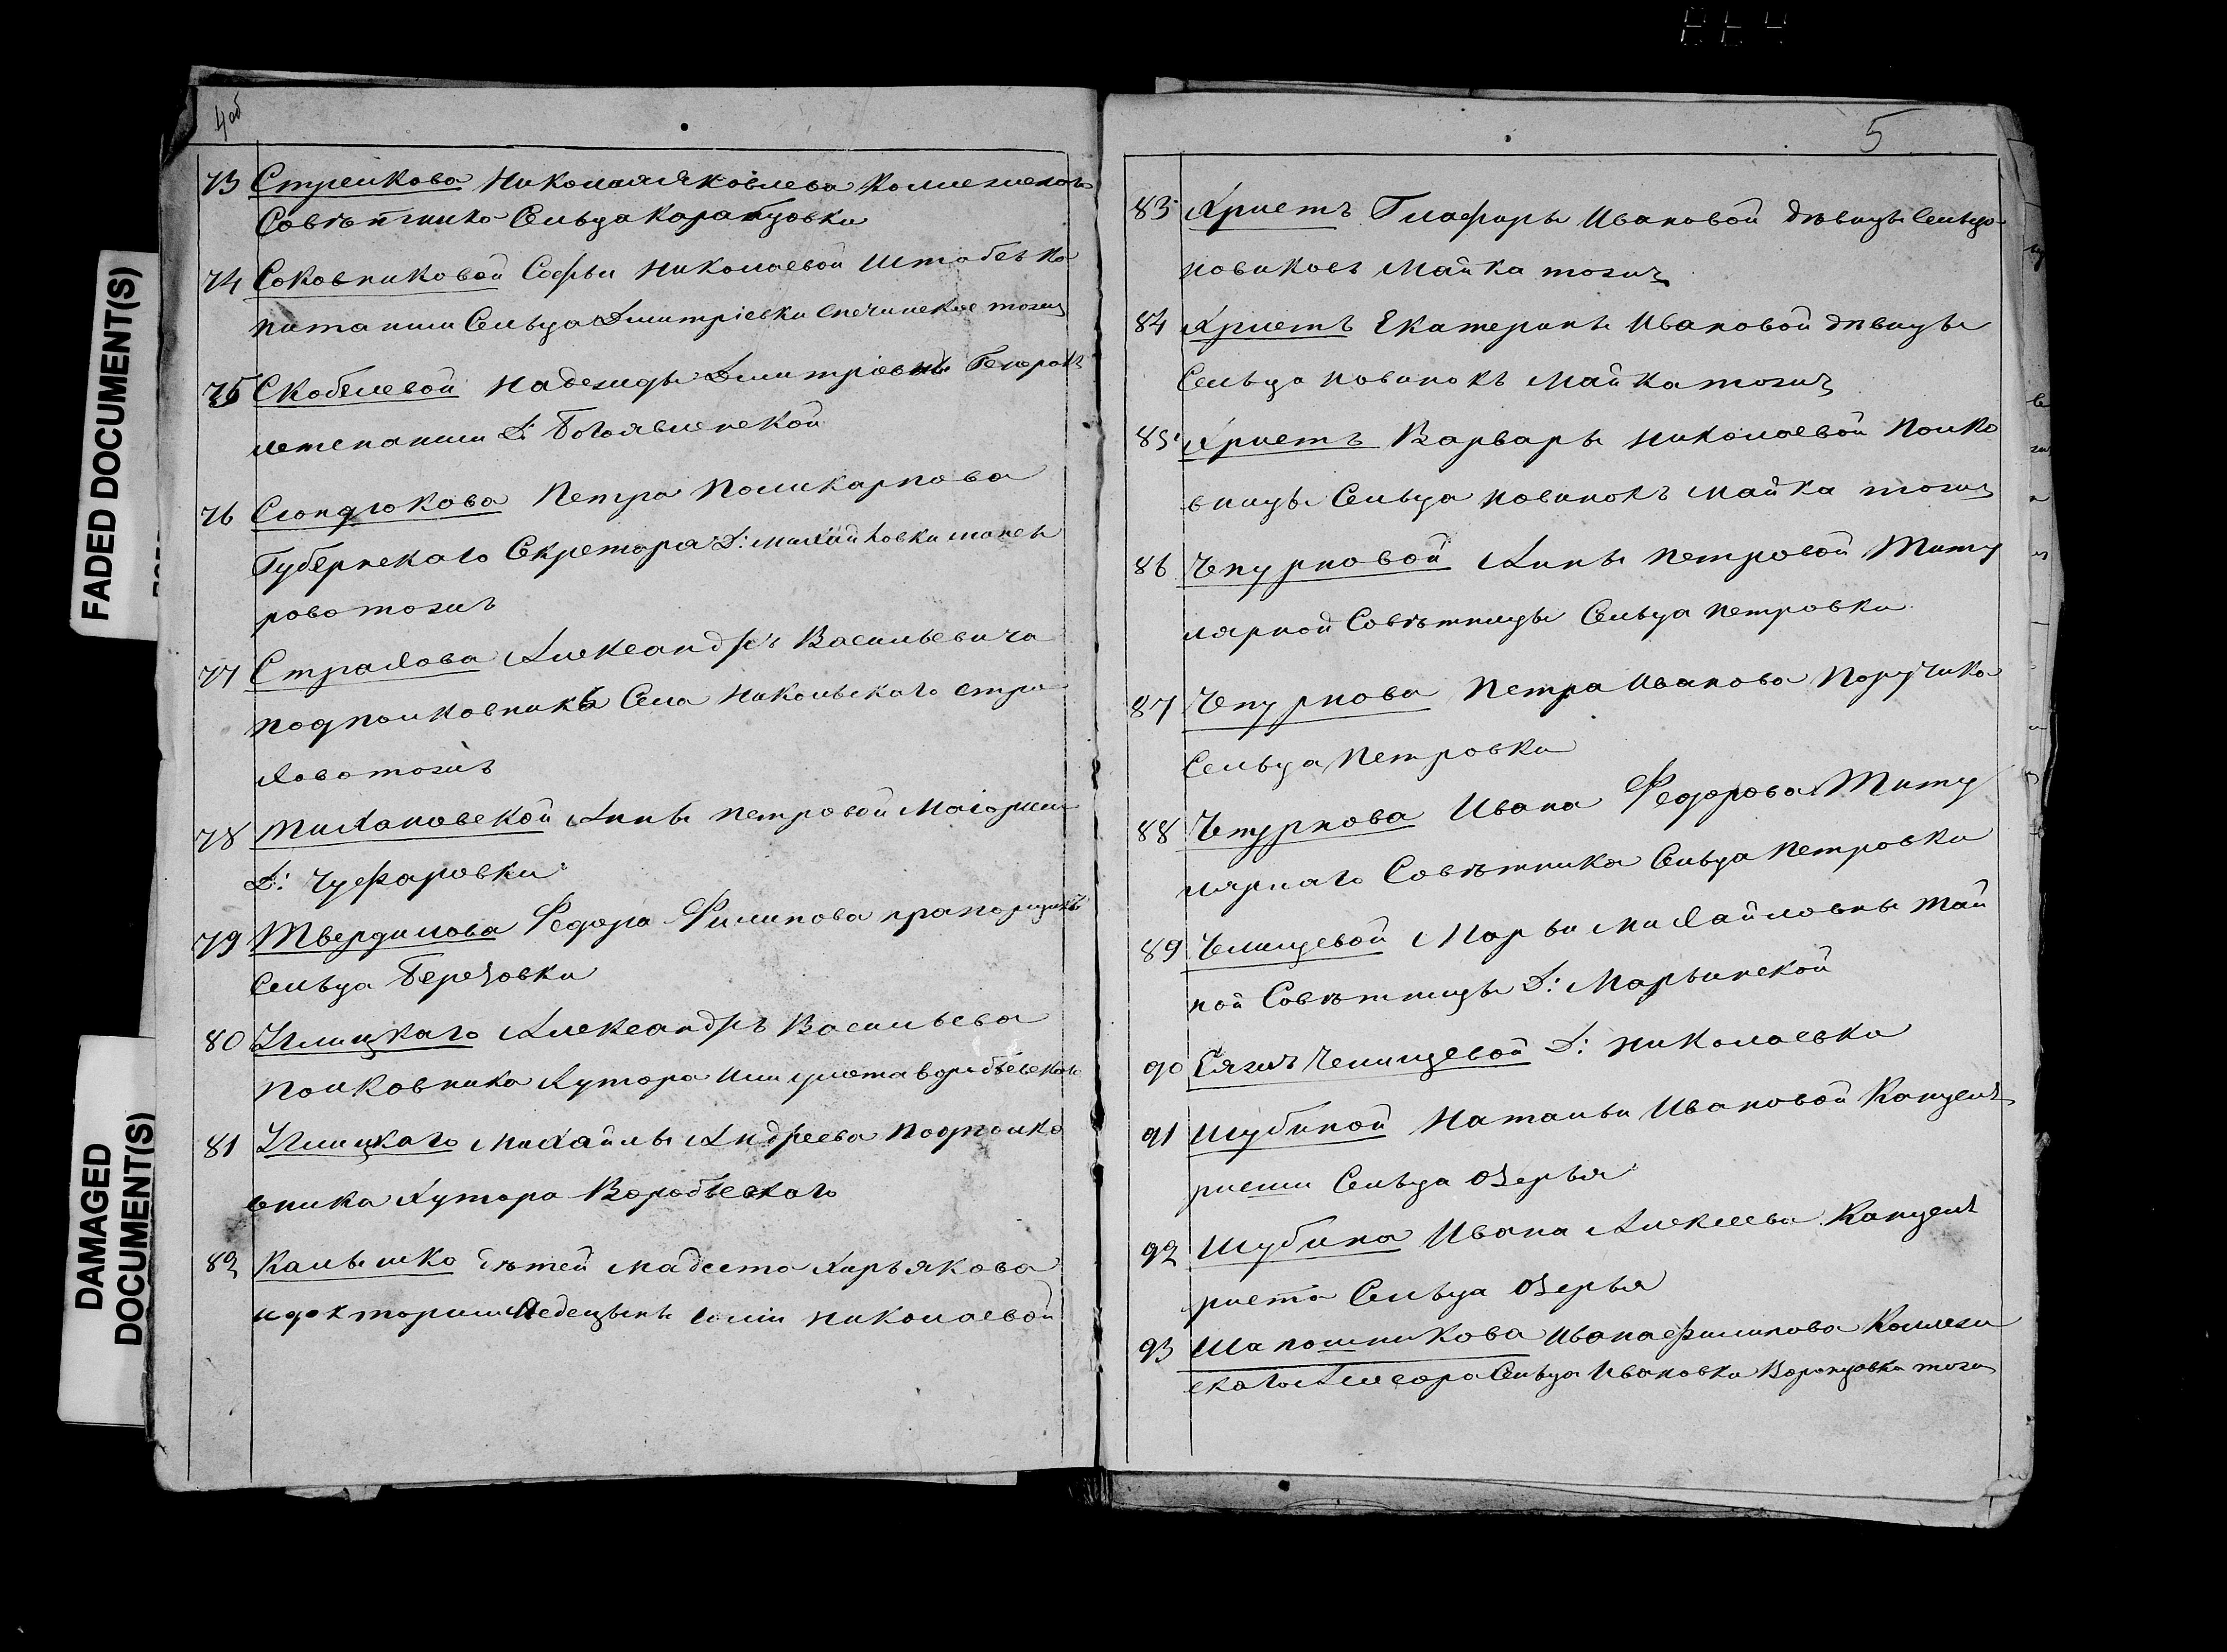 4об
73 Стрелкова Николая Яковлева Коллежскаго
Совѣтника Сельца Карабцовки
74 Соковниковой Софьи Николаевой Штабсъ Ка
питанши Сельца Дмитріевки Спечинское тожъ
75 Скобелевой Надежды Дмитріевны Генералъ
летенанши Д: Богоявленской
76 Сюндюкова Петра Поликарпова
Губернскаго Секретаря Д: Михайловки
рово тожъ
77 Страхова Александръ Васильевича
подполковникъ Села Никольскаго Стра
хово тожъ
78 Тихановской Анны Петровой Маіорши
Д: Чуфаровки
79 Твердилова Федора Филипова прапорщикъ
Сельца Березовки
80 Углицкаго Александръ Васильева
полковника Хутора
81 Углицкаго Михайлы Андреева Подполко
вника Хутора Воробьевскаго
82 Калышко дѣтей Мадеста Хирьякова
и докторши Юліи Николаевой
5
83 Христъ Глафиры Ивановой дѣвицы Сельцо
новиковъ Майка тожъ
84 Христъ Екатерины Ивановой дѣвицы
Сельца новинокъ Майка тожъ
85 Христъ Варвары Николаевой Полко
вницы Сельца новинокъ Майка тожъ
86 Чепурновой Анны Петровой Титу
лярной Совѣтницы Сельца Петровки
87 Чепурнова Петра Иванова Поручика
Сельца Петровки
88 Чепурнова Ивана Федорова Титу
лярнаго Совѣтника Сельца Петровки
89 Челищевой Марьи Михайловны Тай
ной Совѣтницы Д: Марьинской
90 Ея жъ Челищевой Д: Николаевка
91 Шубиной Натальи Ивановой Канцеля
ристши Сельца Озерья
92 Шубина Ивана Алексеева Канцеля
риста Сельца Озерья
93 Шапошникова Ивана Филипова Коллежи
скаго Асесора Сельца Ивановки Воронцовка тожъ
FADED DOCUMENT(S)
DAMAGED
DOCUMENT(S)